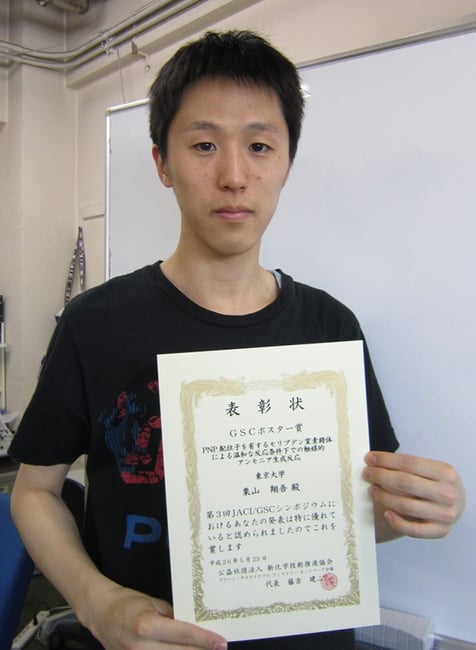 表彰状
GSCポスター賞
PNP配位子を有するモリブデン窒素錯体
による温和な反応条件下での触媒的
アンモニア生成反応
東京大学
栗山 翔吾 殿
第3回JACI/GSCシンポジウムに
おけるあなたの発表は特に優れて
いると認められましたのでこれを
賞します
平成26年5月23日
公益社団法人 新化学技術推進協会
グリーン・サステイナブル ケミストリー ネットワーク会議
代表 藤吉 建二
P